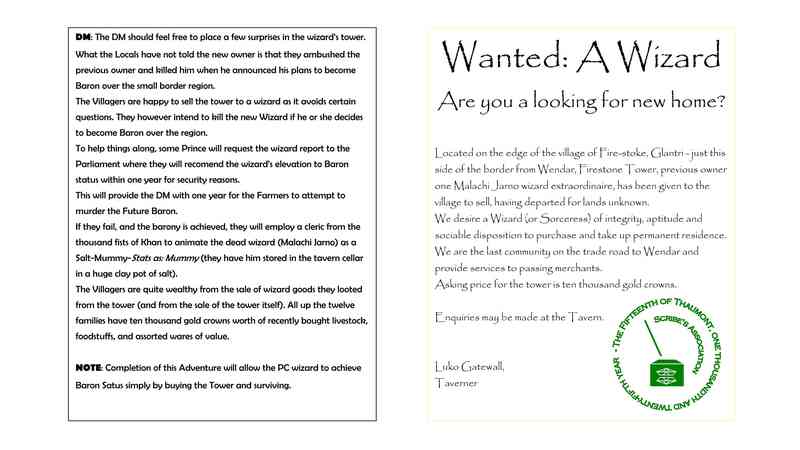 DM: The DM should feel free to place a few surprises in the wizard's tower.
What the Locals have not told the new owner is that they ambushed the
previous owner and killed him when he announced his plans to become
Baron over the small border region.
The Villagers are happy to sell the tower to a wizard as it avoids certain
questions. They however intend to kill the new Wizard if he or she decides
to become Baron over the region.
To help things along, some Prince will request the wizard report to the
Parliament where they will recomend the wizard's elevation to Baron
status within one year for security reasons.
This will provide the DM with one year for the Farmers to attempt to
murder the Future Baron.
If they fail, and the barony is achieved, they will employ a cleric from the
thousand fists of Khan to animate the dead wizard (Malachi Jarno) as a
Salt-Mummy-Stats as: Mummy (they have him stored in the tavern cellar
in a huge clay pot of salt).
The Villagers are quite wealthy from the sale of wizard goods they looted
from the tower (and from the sale of the tower itself). All up the twelve
families have ten thousand gold crowns worth of recently bought livestock,
foodstuffs, and assorted wares of value.
NOTE: Completion of this Adventure will allow the PC wizard to achieve
Baron Satus simply by buying the Tower and surviving.
Wanted: A Wizard
Are you a looking for new home?
Located on the edge of the village of Fire-stoke, Glantri - just this
side of the border from Wendar, Firestone Tower, previous owner
one Malachi Jarno wizard extraordinaire, has been given to the
village to sell, having departed for lands unknown.
We desire a Wizard (or Sorceress) of integrity, aptitude and
sociable disposition to purchase and take up permanent residence.
We are the last community on the trade road to Wendar and
provide services to passing merchants.
Asking price for the tower is ten thousand gold crowns.
Enquiries may be made at the Tavern.
Luko Gatewall,
Taverner
- The Fifteenth of Thaumont, one thousandth and twenty-fifth year
Scribe's Association